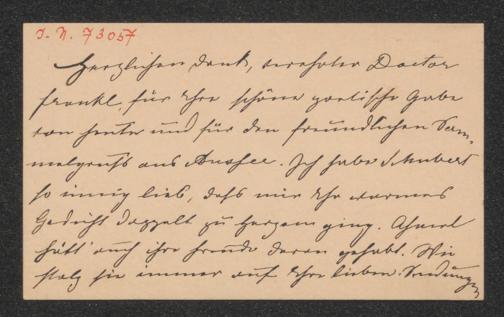 I. N. 73057
Herzlichen Dank, verehrter Doctor
Frankl, für Ihre schöne poetische Gabe
von heute und für den freundlichen Sam-
melgruß aus Aussee. Ich habe Schubert
so innig lieb, daß mir Ihr warmes
Gedicht doppelt zu Herzen ging.
hätt' auch ihre Freude daran gehabt. Wir
stolz sie immer auf Ihre lieben Sendungen